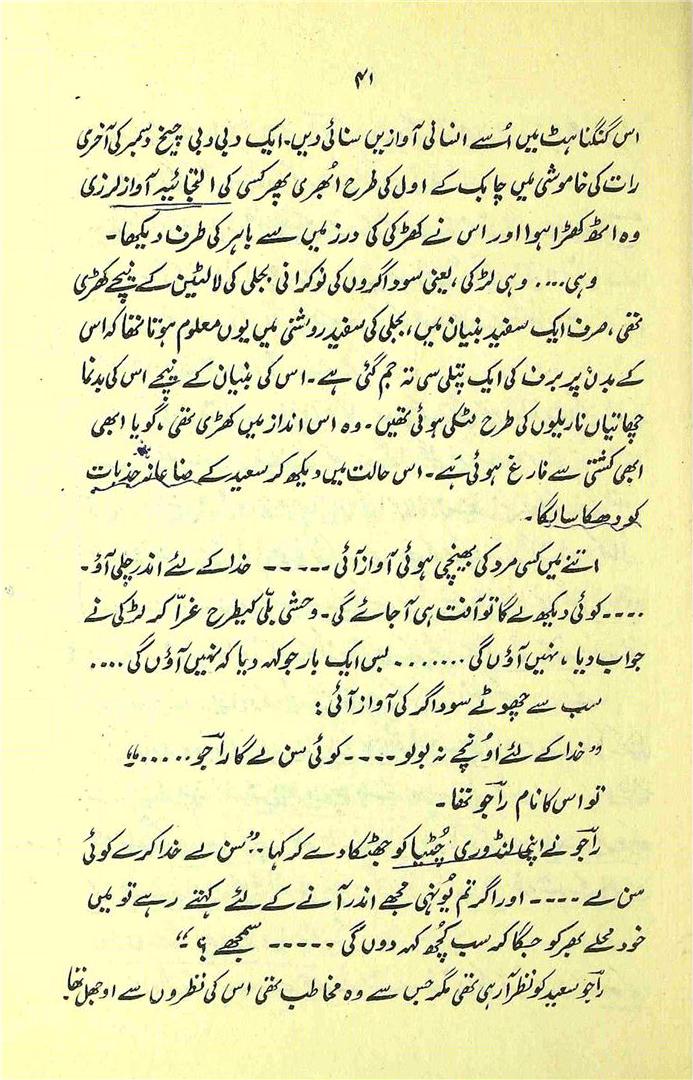 ۴۱
اس گنگناہٹ میں اُسے انسانی آوازیں سنائی دیں۔ ایک دبی دبی چیخ دسمبر کی آخری
رات کی خاموشی میں چابک کے اول کی طرح اُبھری پھر کسی کی التجائیہ آواز لرزی
وہ اٹھ کھڑا ہوا اور اس نے کھڑکی کی درز میں سے باہر کی طرف دیکھا۔
وہی.... وہی لڑکی، یعنی سوداگروں کی نوکرانی بجلی کی لالٹین کے نیچے کھڑی
تھی، صرف ایک سفید بنیان میں، بجلی کی سفید روشنی میں یوں معلوم ہوتا تھا کہ اس
کے بدن پر برف کی ایک پتلی سی تہ جم گئی ہے۔ اس کی بنیان کے نیچے اس کی بدنما
چھاتیاں ناریلوں کی طرح لٹکی ہوئی تھیں۔ وہ اس انداز میں کھڑی تھی، گویا ابھی
ابھی کشتی سے فارغ ہوئی ہے۔ اس حالت میں دیکھ کر سعید کے صناعانہ جذبات
کو دھکا سا لگا۔
اتنے میں کسی مرد کی بھینچی ہوئی آواز آئی ----- خدا کے لئے اندر چلی آؤ۔
---- کوئی دیکھ لے گا تو آفت ہی آجائے گی۔ وحشی بلّی کیطرح غرّا کر لڑکی نے
جواب دیا، نہیں آؤں گی ....... بس ایک بار جو کہہ دیا کہ نہیں آؤں گی ....
سب سے چھوٹے سوداگر کی آواز آئی:
"خدا کے لئے اونچے نہ بولو ---- کوئی سن لے گا راجو ....."
تو اس کا نام راجو تھا۔
راجو نے اپنی لنڈوری چُٹیا کو جھٹکا دے کر کہا.. "سن لے خدا کرے کوئی
سن لے ---- اور اگر تم یُونہی مجھے اندر آنے کے لئے کہتے رہے تو میں
خود محلے بھر کو جگا کر سب کچھ کہہ دوں گی ----- سمجھے؟۔"
راجو سعید کو نظر آ رہی تھی مگر جس سے وہ مخاطب تھی اس کی نظروں سے اوجھل تھا۔